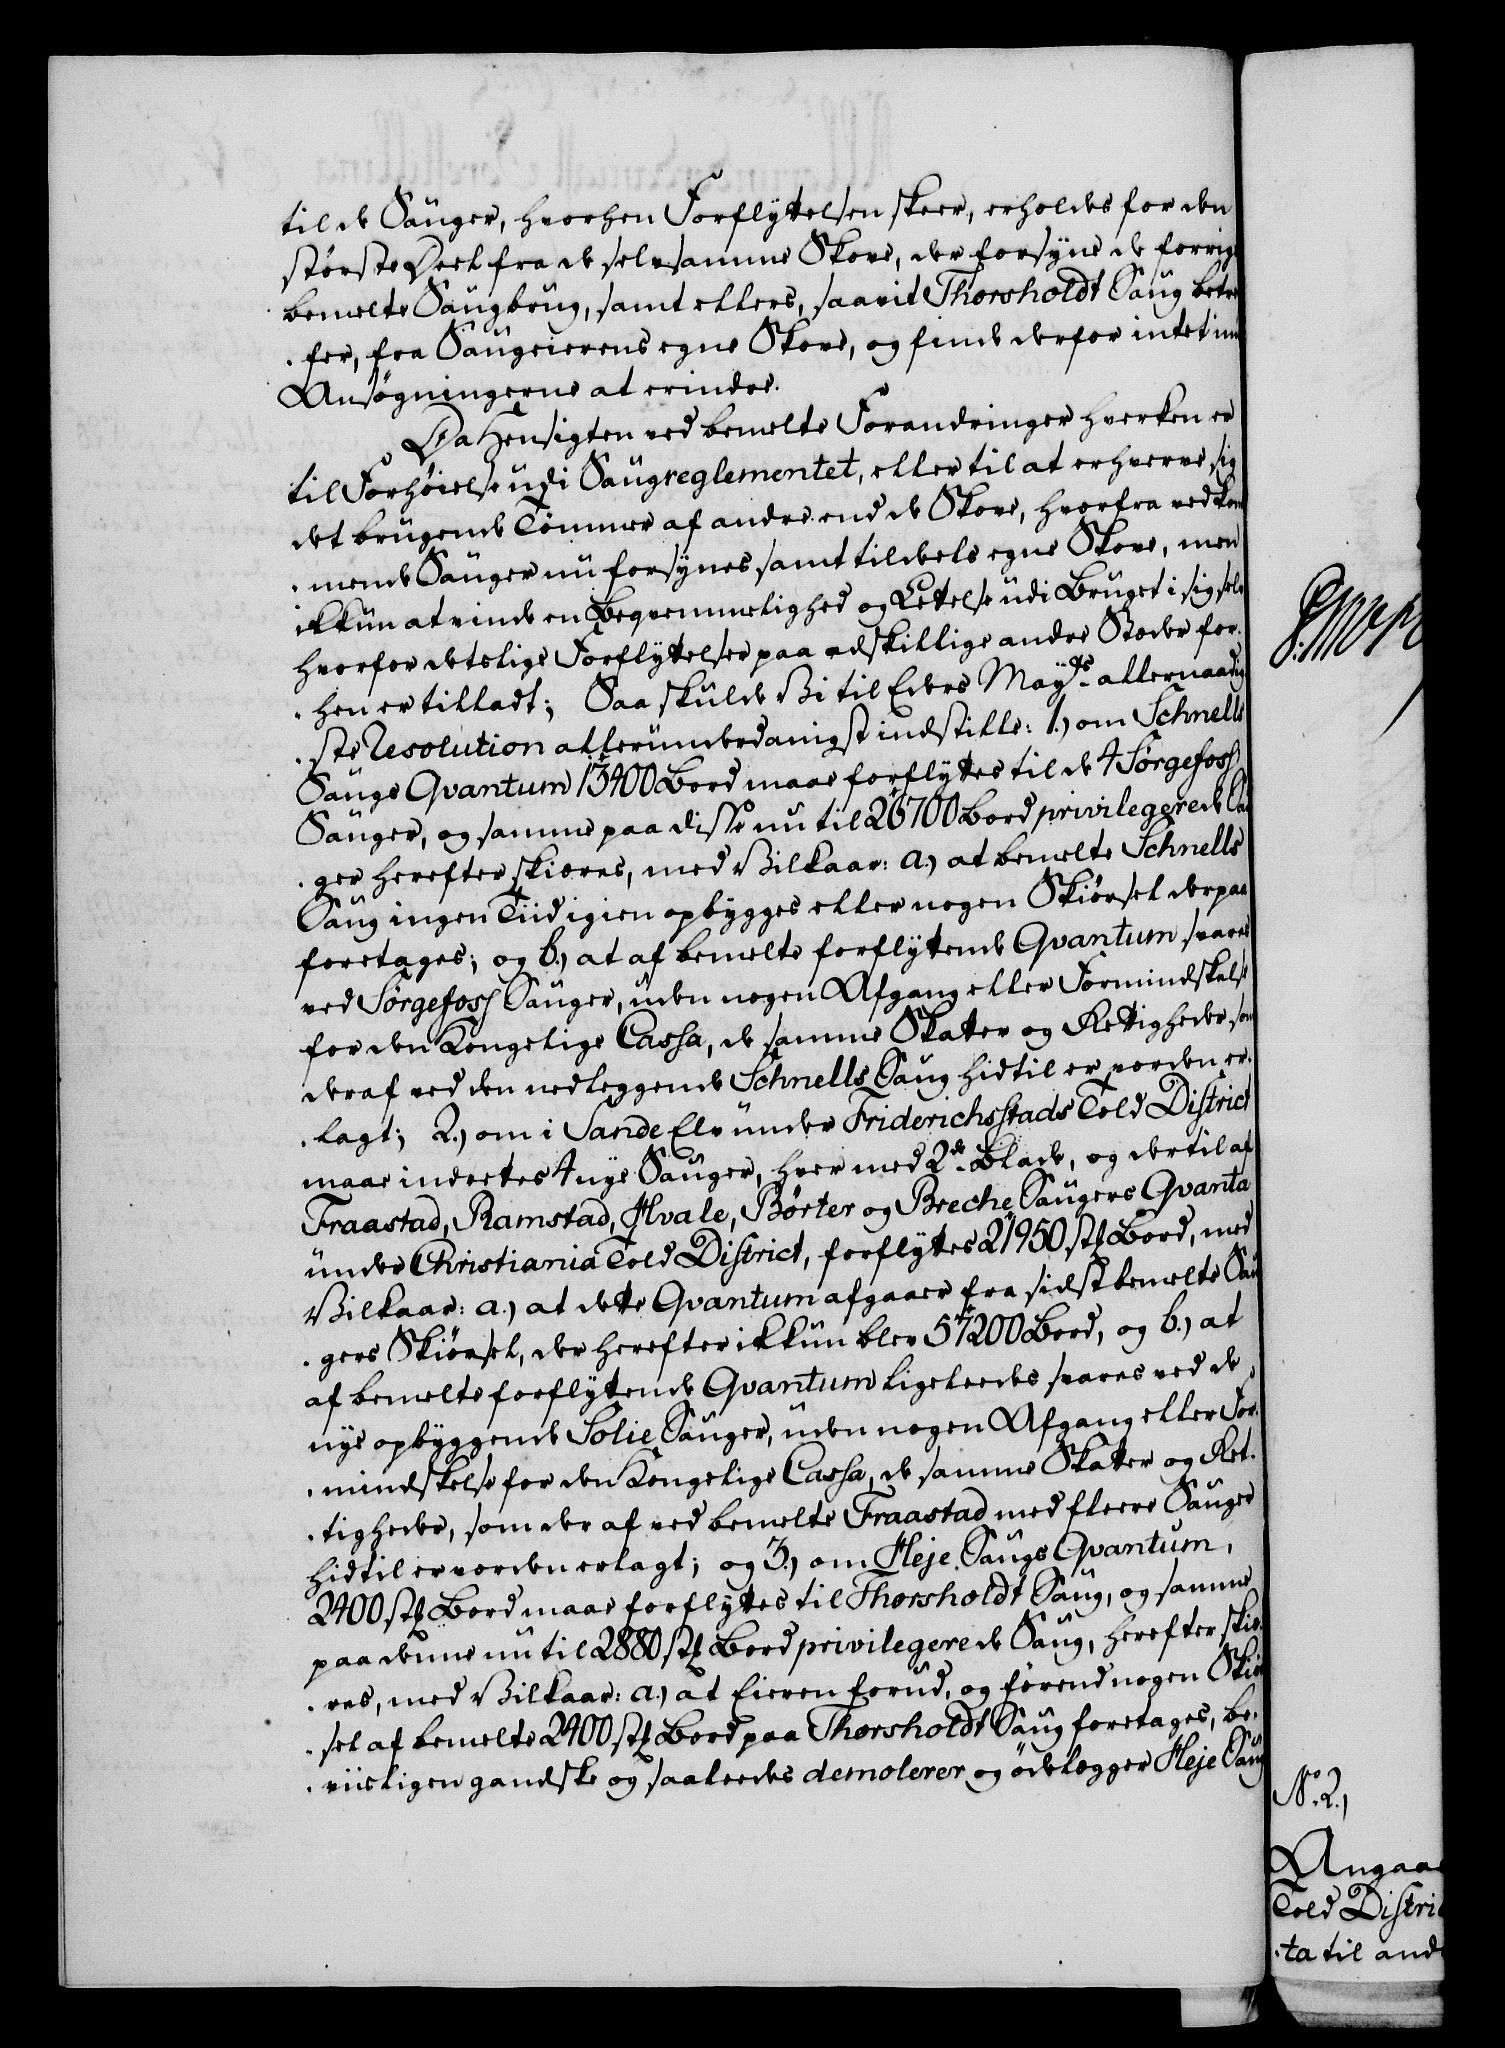 til de Sauger, hvorhen Forflyttelsen skeer, erholdes for den
største Deel fra de selvsamme Skove, der forsyne de forrig
bemelte Saugbrug, samt ellers, saavit Thorsholdt Saug betræf
fer, fra Saugeierens egne Skove, og finde derfor intet imod
Ansøgningerne at erindre.
Da Hensigten ved bemelte Forandringer hverken er
til Forhøielse udi Saugreglementet, eller til at erhverve sig
det brugende Tømmer af andre end de Skove, hvorfra vedkom
mende Sauger nu forsynes samt tildeels egne Skove, men
ikkun at vinde en Beqvemmelighed og Lettelse udi Bruget i sig selv
hvorfor detslige Forflyttelser paa adskillige andre Steder for
hen er tilladt; Saa skulde Vi til Eders Mayts allernaadig
ste Resolution allerunderdanigst indstille: 1.) om Schnells
Saugs Qvantum 13400 Bord maae forflyttes til de 4 Sørgefoss
Sauger, og samme paa disse nu til 26700 Bord privilegerede Sau
ger herefter skiæres, med Vilkaar: a.) at bemelte Schnells
Saug ingen Tiid igien opbygges eller nogen Skiørsel derpaa
foretages; og b.) at af bemelte forflyttende Qvantum svares
ved Sørgefoss Sauger, uden nogen Afgang eller Formindskelse
for den Kongelige Cassa, de samme Skatter og Rettigheder som
deraf ved den nedleggende Schnells Saug hidtil er vorden er-
lagt; 2.) om i Sande Elv under Friderichsstads Told District
maae indrettes 4 nye Sauger, hver med 2de Blade, og dertil af
Fraastad, Ramstad, Hvale, Børter og Breche Saugers Qvanta
under Christiania Told District, forflyttes 21950 st. Bord, med
Vilkaar: a.) at dette Qvantum afgaaer fra sidst bemelte Sau
gers Skiørsel, der herefter ikkun blev 57200 Bord, og b.) at
af bemelte forflyttende Qvantum ligeledes svares ved de
nye opbyggende Solie Sauger, uden nogen Afgang eller For-
mindskelse for den Kongelige Cassa, de samme Skatter og Ret-
tigheder, som der af ved bemelte Fraastad med fleere Sauger
hidtil er vorden erlagt; og 3.) om Heje Saugs Qvantum,
2400 st. Bord maae forflyttes til Thorsholdt Saug, og samme
paa denne nu til 2880 st. Bord privilegerede Saug, herefter skiæ-
res, med Vilkaar: a.) at Eieren forud, og førend nogen Skiør
sel af bemelte 2400 st. Bord paa Thorsholdt Saug foretages, be-
viisligen gandske og saaledes demolerer og ødelegger Heje Saug
No. 2.)
Angaa
Told Distri
ta til and